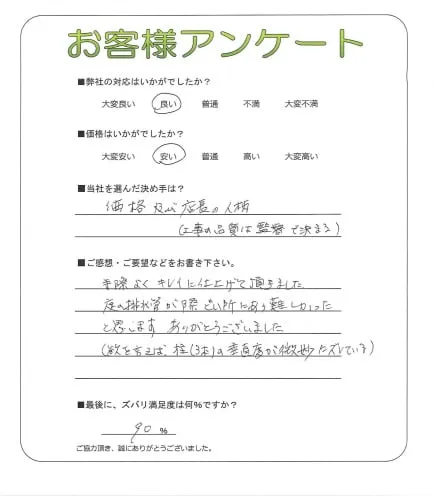 お客様アンケート
■弊社の対応はいかがでしたか?
大変良い 良い 普通 不満 大変不満
■価格はいかがでしたか?
大変安い 安い 普通 高い 大変高い
■当社を選んだ決め手は?
価格及び店長の人柄
(工事の品質は監督で決まる)
■ご感想・ご要望などをお書き下さい。
手際よくキレイに仕上げて頂きました
庭の排水管が際どい所にあり難しかった
と思います ありがとうございました
(欲を言えば、柱(3本)の垂直度が微妙にズレている)
■最後に、ズバリ満足度は何%ですか?
90 %
ご協力頂き、誠にありがとうございました。